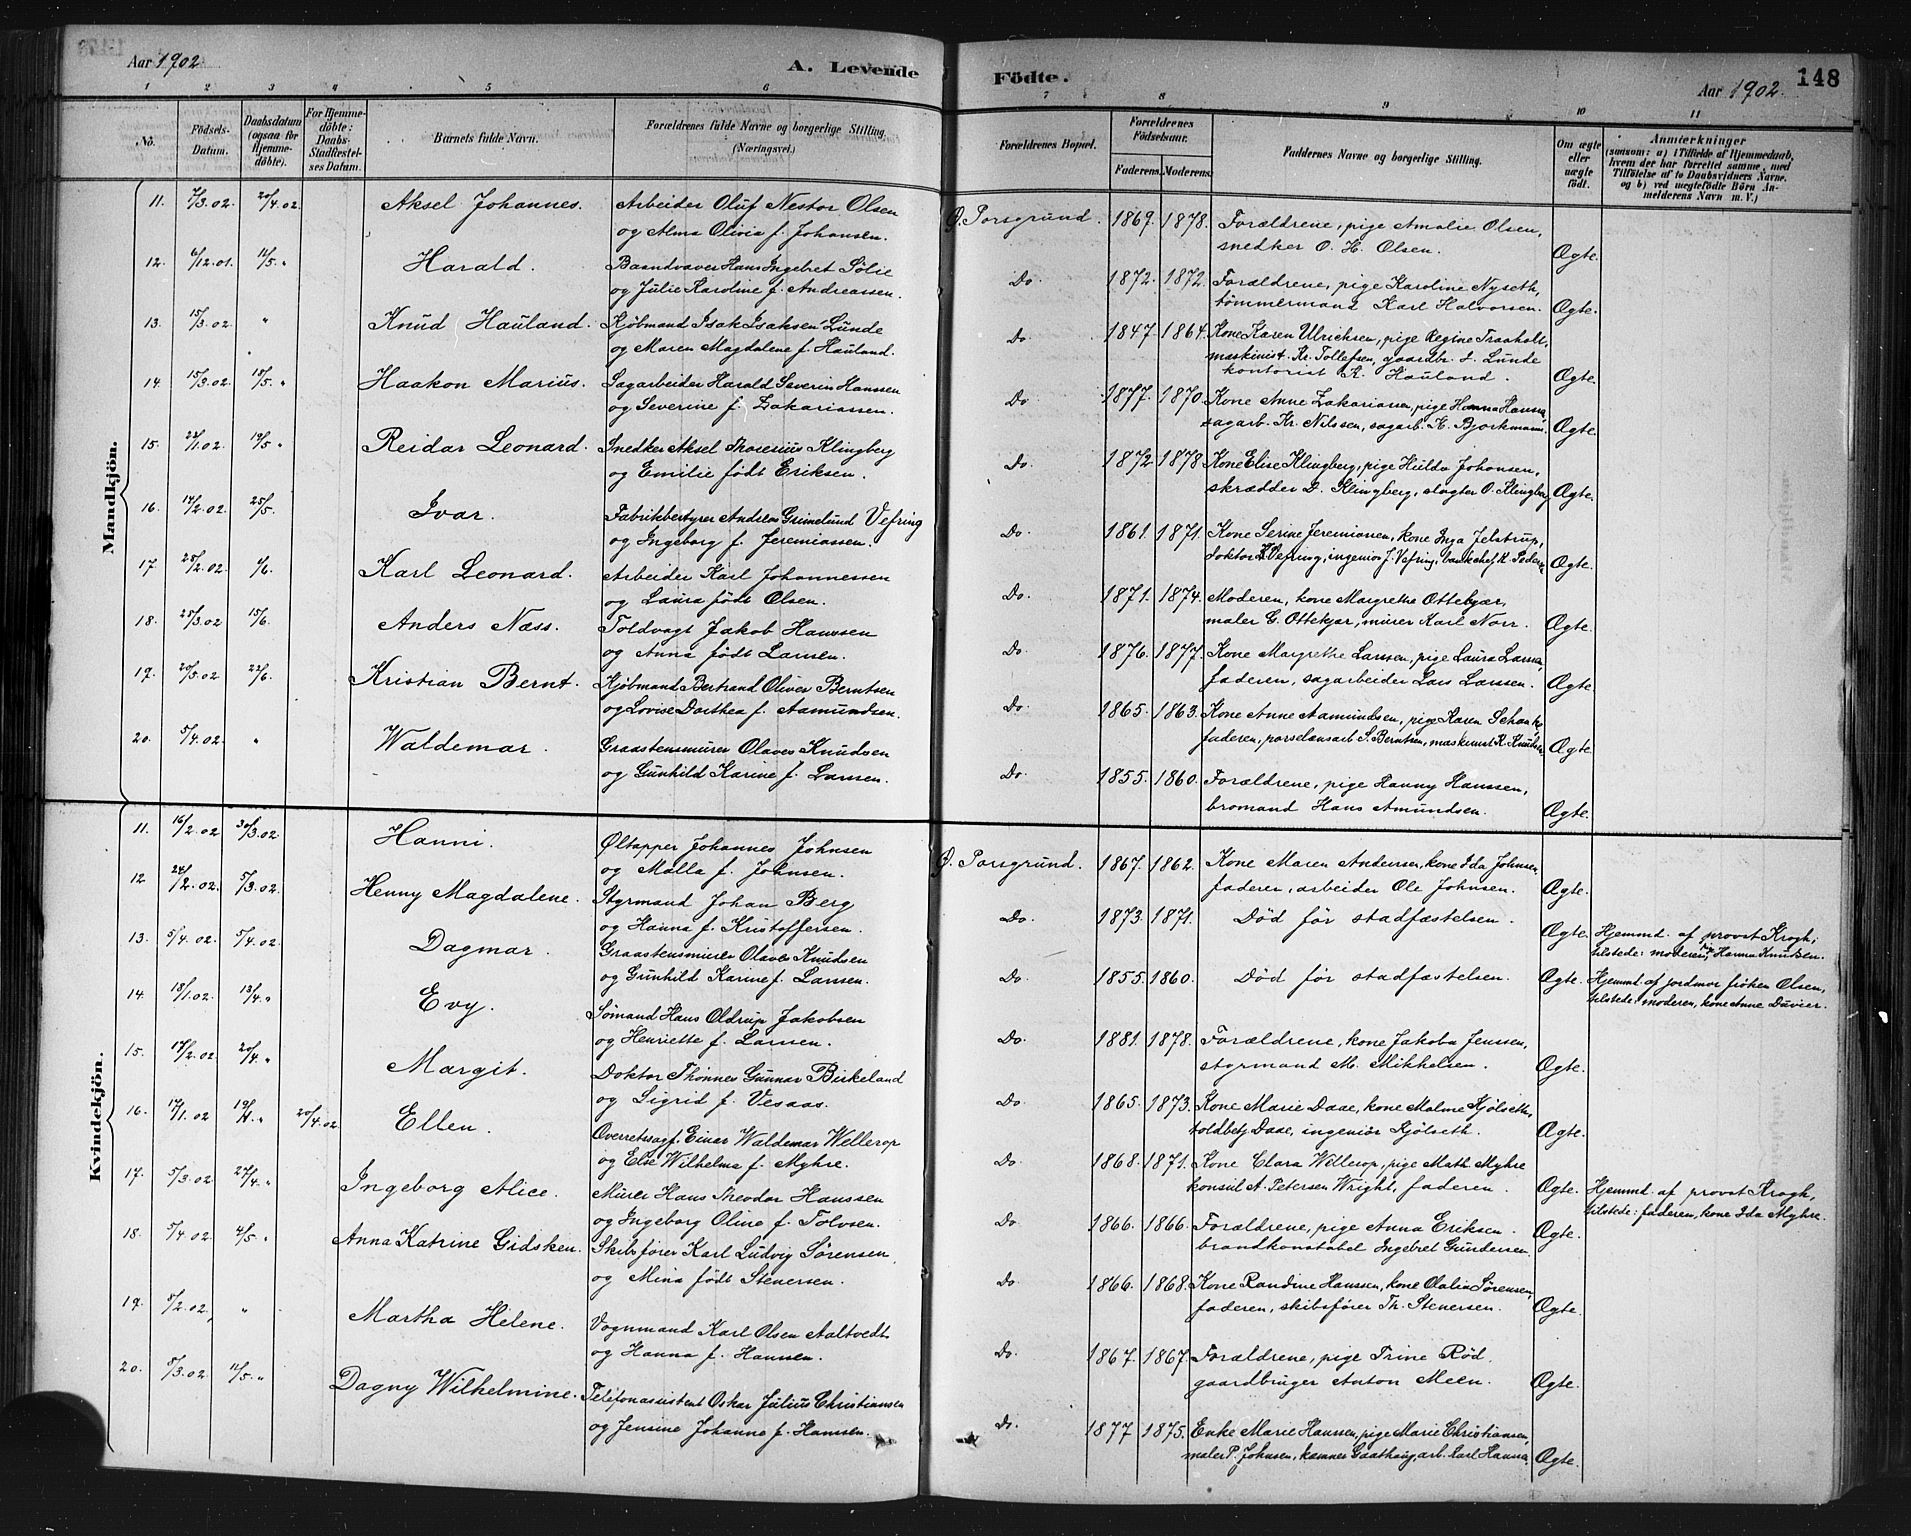 Aar 1902
A. Levende
1 2 3 4 5 6
No.
Födsels-Datum.
Daabsdatum (ogsaa for Hjemmedöbte).
For Hjemmedöbte: Daabs-Stadfæstelses Datum.
Barnets fulde Navn.
Forældrenes fulde Navne og borgerlige Stilling. (Næringsvei.)
Mandkjön.
11. 7/3.02. 20/4.02. Aksel Johannes. Arbeider Oluf Nestor Olsen
og Alma Olivia f. Johansen.
12. 6/12.01. 11/5. " Harald. Baandvaver Hans Ingebret Sölie
og Julie Karoline f. Andreassen.
13. 15/3.02. " Knud Hauland. Kjöbmand Isak Isaksen Lunde
og Maren Magdalene f. Hauland.
14. 15/3.02. 18/5. " Haakon Marius. Sagarbeider Harald Severin Hanssen
og Severine f. Zakariassen.
15. 22/1.02. 19/5 " Reidar Leonard. Snedker Aksel Thorenius Klingberg
og Emilie født Eriksen.
16. 14/2.02. 25/5. Ivar. Fabrikbestyrer Andreas Grimelund Vefring
og Ingeborg f. Jeremiassen.
17. 25/2.02. 1/6. Karl Leonard. Arbeider Karl Johannessen
og Laura født Olsen.
18. 25/3.02 15/6. Anders Næss. Toldvagt Jakob Hanssen
og Anna født Larsen.
19. 20/5.02 22/6. Kristian Bernt. Kjöbmand Bertrand Oliver Berntsen
og Lovise Dorthea f. Aamundsen.
20. 5/4.02. " Waldemar. Graastensmurer Olaves Knudsen
og Gunhild Karine f. Larsen.
Kvindekjön.
11. 16/2.02 30/3.02. Hanni. Øltapper Johannes Johnsen
og Malla f. Johnsen.
12 24/2.02. 5/3.02. Henny Magdalene. Styrmand Johan Berg
og Hanna f. Kristoffersen.
13. 5/4.02. 5/4.02. Dagmar. Graastensmurer Olaves Knudsen
og Gunhild Karine f. Larsen.
14. 18/1.02. 13/4. " Evy. Sömand Hans Oldrup Jakobsen
og Henriette f. Larsen.
15. 17/2.02 20/4. " Margit. Doktor Thönnes Gunnar Birkeland
og Sigrid f. Vesaas.
16. 17/1.02 19/4. " 20/4.02 Ellen. Overretssagf. Einar Waldemar Wellerop
og Else Wilhelma f. Myhre.
17. 5/3.02 27/4. " Ingeborg Alice. Murer Hans Theodor Hanssen
og Ingeborg Oline f. Tolvsen.
18. 5/4.02 4/5 " Anna Katrine Gidsken. Skibsfører Karl Ludvig Sørensen
og Mina født Stenersen.
19. 8/2.02. " Martha Helene. Vognmand Karl Olsen Aaltvedt
og Hanna f. Hansen.
20. 5/3.02. 11/5. " Dagny Wilhelmine. Telefonassistent Oskar Julius Christiansen
og Jensine Johanne f. Hansen.
Födte.
148
Aar 1902.
7 8 9 10 11
Forældrenes Bopæl.
Forældrenes Födselsaar.
Faderens. Moderens.
Faddernes Navne og borgerlige Stilling.
Om ægte eller uægte födt.
Anmærkninger
(saasom: a) i Tilfælde af Hjemmedaab,
hvem der har forrettet samme, med
Tilföielse af to Daabsvidners Navne.
og b) ved uægtefödte Börn Anmelderens Navn m. V.)
Ø. Porsgrund. 1869. 1878. Forældrene, pige Amalie Olsen,
snedker O. H. Olsen. Ægte.
Do 1872. 1872. Forældrene, pige Karoline Nyseth,
tömmermand Karl Halvorsen. Ægte.
Do 1847. 1864. Kone Karen Ulrichsen, pige Regine Traaholt
maskinist. Kr. Tollefsen, gaardbr. I. Lunde
kontorist K. Hauland. Ægte.
Do 1877. 1870. Kone Anne Zakariassen, pige Hanna Hansen,
sagarb. Kr. Nilssen, sagarb. K. Bjorkmann. Ægte.
Do 1872. 1878 Kone Elise Klingberg, pige Hulda Johansen,
skrædder D. Klingberg, slagter O. Klingberg Ægte.
Do 1861. 1871. Kone Serine Jeremiassen, kone Inga Jelstrup,
doktor K. Vefring, ingeniör J. Vefring, bankchef K. Pedersen Ægte.
Do 1871. 1874. Moderen, kone Margrethe Ottekjær,
maler G. Ottekjær, murer Karl Norr. Ægte.
Do 1876. 1877. Kone Margrethe Larssen, pige Laura Larsen,
faderen, sagarbeider Lars Larssen. Ægte.
Do 1865. 1863. Kone Anne Aamundsen, pige Karen Schanke,
faderen, porselænsarb S. Berntsen, maskinist K. Knudsen. Ægte.
Do 1855. 1860. Forældrene, pige Hanny Hanssen,
bromand Hans Amundsen. Ægte.
Ø. Porsgrund. 1867. 1862. Kone Maren Andersen, kone Ida Johnsen,
faderen, arbeider Ole Johnsen. Ægte.
Do. 1873. 1871. Död för stadfæstelsen. Ægte. Hjemmd. af provst Krogh;
tilstede: moderen, pige Hanna Knudsen.
Do 1855. 1860. Död för stadfæstelsen. Ægte. Hjemmd. af jordmor fröken Olsen,
tilstede: moderen, kone Anne Duvier.
Do 1881. 1878. Forældrene, kone Jakoba Jenssen,
styrmand M. Mikkelsen. Ægte.
Do 1865. 1873. Kone Marie Daae, kone Malme Kjölseth,
toldbetj. Daae, ingeniör Kjölseth. Ægte.
Do 1868. 1871. Kone Clara Wellerop, pige Math. Myhre
konsul A. Petersen Wright, faderen. Ægte. Hjemmd. af provst Krogh,
tilstede: faderen, kone Ida Myhre.
Do 1866. 1866. Forældrene, pige Anna Eriksen.
brandkonstabel Ingebret Gundersen Ægte.
Do 1866. 1868. Kone Randine Hanssen, kone Olalia Sørensen,
faderen, skibsfører Th. Stenersen. Ægte.
Do. 1867. 1867. Forældrene, pige Trine Röd,
gaardbruger Anton Meen. Ægte.
Do. 1877 1875. Enke Marie Hanssen, pige Marie Christiansen
maler P. Johnsen, kæmner Gaathaug, arb. Karl Hansen, Ægte.